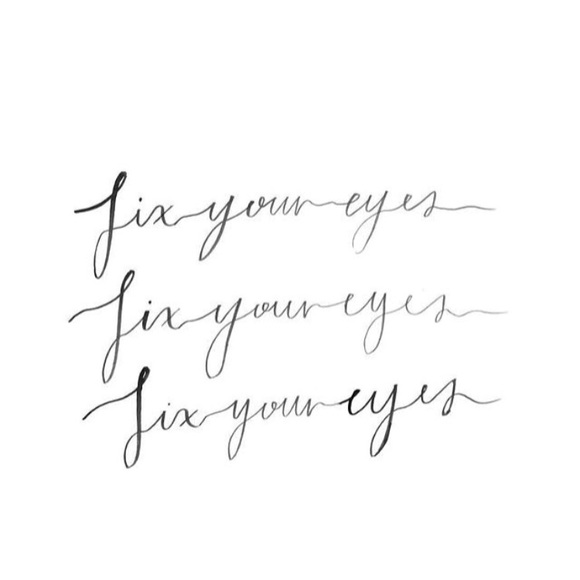 fix your eyes
fix your eyes
fix your eyes